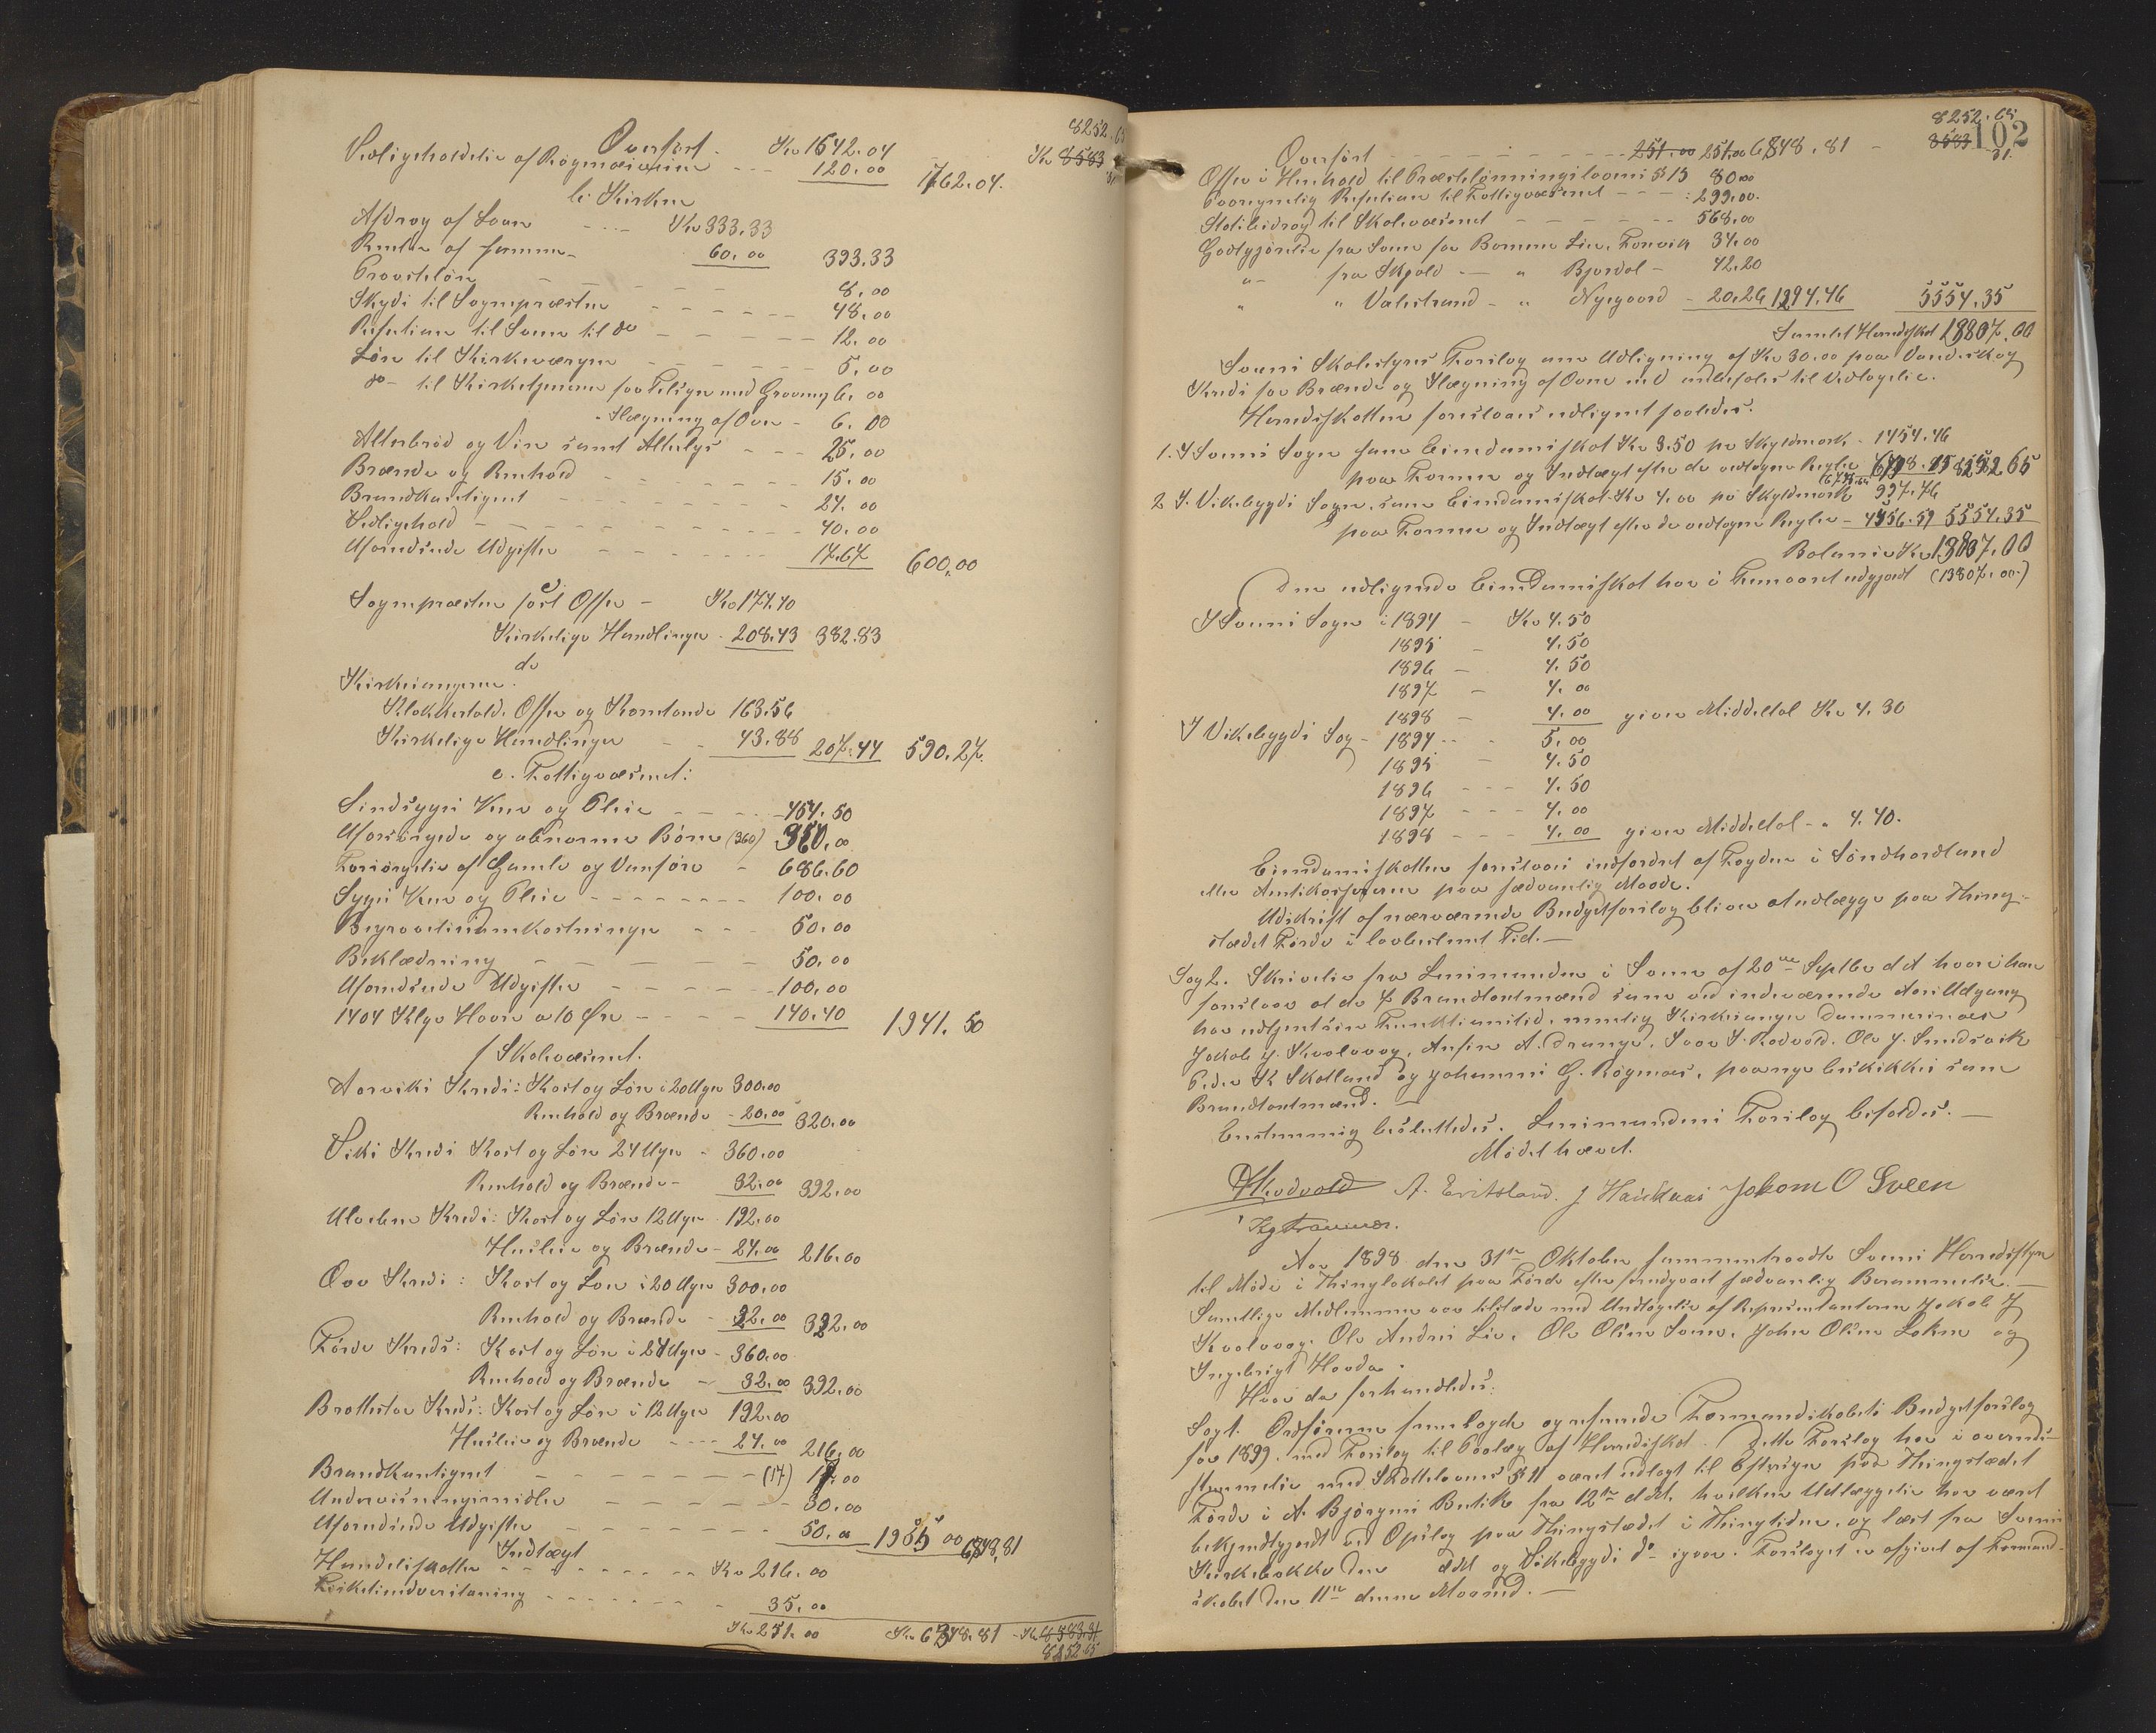 8252.65
Overført - Kr 1642.04 - Kr 8583.31
Vedligeholdelse af Rögnæs - - - 120.00 1762.04.
b: Kirken
Afdrag af Laan - - - Kr 333.33
Renter af samme - 60.00 393.33
Provsteløn - - - 8.00
Skyds til Sognepræsten - - - 48.00
Refusion til Sveen til do - - - 12.00
Løn til Kirkeværgen - - - 5.00
do- til Kirketjeneren for Tilsyn med Gravning 6.00
" Lægning af Ovn - 6.00
Alterbrød og Vin samt Alterlys - - - 25.00
Brænde og Renhold - - - 15.00
Brandkontingent - - - 24.00
Vedligehold - - - 40.00
Uforudseede Udgifter - - - 17.67 600.00
Sognepræsten fast Offer - Kr 174.40
Kirkelige Handlinger - 208.43 382.83
do
Kirkesangerne:
Klokkertold, Offer og Korntiende 163.56
Kirkelige Handlinger - - 43.88 207.44 590.27.
e. Fattigvæsenet:
Sindssyges Kur og Pleie - - - 454.50
Uforsørgede og abnorme Børn (360) 360.00
Forsørgelse af Gamle og Vanføre - 686.60
Syges Kur og Pleie - - - 100.00
Begravelsesomkostninger - - - 50.00
Beklædning - - - 50.00
Uforudseede Udgifter - - - 100.00
1404 Klgr Havre a 10 Øre - - - 140.40 1941.50
f Skolevæsenet.
Aarviks Kreds: Kost og Løn i 20 Uger 300.00
Renhold og Brænde - 20.00 320.00
Viks Kreds Kost og Løn 24 Uger - 360.00
Renhold og Brænde - 32.00 392.00
Ulveben Kreds: Kost og Løn 12 Uger 192.00
Husleie og Brænde - 24.00 216.00
Kreds: Kost og Løn i 20 Uger 300.00
Renhold og Brænde - 22.00 322.00
Førde Kreds: Kost og Løn i 24 Uger - 360.00
Renhold og Brænde - 32.00 392.00
Kreds: Kost og Løn i 12 Uger 192.00
Husleie og Brænde - - - 24.00 216.00
Brandkontingent - - - (17) 17.00
Undervisningsmidler - - - 30.00
Uforudseede Udgifter - - - 50.00 1955.00 6848.81
Indtægt
Handelsskatten - - - Kr 216.00
- - - 35.00
Kr 251.00 Kr 6848.81 - Kr 8583.31
8252.65
8252.65
102
Overført - - - 251.00 251.00 6848.81 - 8583.31
Offer i Henhold til Præstelønningsloven § 13 80.00
Paaregnelig Refusion til Fattigvæsenet - - - 299.00.
Statsbidrag til Skolevæsenet - - - 568.00
Godtgjørelse fra Sveen for Bommen Lie, Tonvik 34.00
" - fra Skjold - " Bjordal - 42.20
" " Valestrand - " Nygaard - 20.26 1294.46 5554.35
Samlet Herredsskat 13807.00
Sveens Skolestyres Forslag om Udligning af Kr 30.00 paa Vandaskog
Kreds for Brænde og Lægning af Ovne ved anbefales til Vedtagelse.
Herredsskatten foreslaaes udlignet saaledes:
1. I Sveens Sogn som Eiendomsskat Kr 3.50 pr Skyldmark - 1454.46
paa Formue og Indtægt efter de vedtagne Regler 8252.65
2 I Vikebygds Sogn, som Eiendomsskat Kr 4.00 pr Skyldmark 997.76
paa Formue og Indtægt efter de vedtagne Regler - 4556.59 5554.35
Balance Kr 13807.00
Den udlignede Eiendomsskat har i Femaaret udgjort (13807.00.)
I Sveens Sogn i 1894 - Kr 4.50
1895 - 4.50
1896 - 4.50
1897 - 4.00
1898 - 4.00 giver Middeltal Kr 4.30
I Vikebygds Sog - 1894 - - 5.00
1895 - 4.50
1896 - - - 4.50
1897 - - - 4.00
1898 - - - 4.00 giver Middeltal - " 4.40.
Eiendomsskatten foreslaaes indfordret af Fogden i Søndhordland
eller Amtskassereren paa sædvanlig Maade.
Udskrift af nærværende Budgetforslag bliver at udlægge paa Thing-
stedet Førde i lovbestemt Tid.-
Sag 2. Skrivelse fra Lensmanden i Sveen af 20de Septbr d A hvori han
foreslaar at de 7 Brandtaxtmænd som ved indeværende Aars Udgang
har udtjent sin Funktionstid, nemlig Kirkesanger Dommersnæs
Jakob J. Kvalevaag, Anfin A. Drange, Svar J. Rødvold, Ole J. Smedsvik
Peder K Skålland og Johannes G. Rögnæs, paany beskikkes som
Brandtaxtmænd.
Enstemmig besluttedes: Lensmandens Forslag befoldes.-
Mødet hævet.
A. Eritsland. J Haukaas Johan O Sveen
Aar 1898 den 31te Oktober sammentraadte Sveens Herredsstyre
til Møde i Thinglokalet paa Førde efter forudgaaet sædvanlig Berammelse.-
Samtlige Medlemmer var tilstede med Undtagelse af Repræsentanterne Jakob J
Kvalevaag, Ole Andreas Lie, Ole Olsen Sveen, John Olsen Løken og
Ingebrigt Hovda.
Hvor da forhandledes:
Sag 1. Ordføreren fremlagde og refererede Formandskabets Budgetforslag
for 1899, med Forslag til Paalæg af Herredsskat. Dette Forslag har i overens-
stemmelse med Skattelovens § 11 været udlagt til Eftersyn paa Thingstedet
Førde i A. Bjørgens Butik fra 12te ds, hvilken Udlæggelse har været
bekjendtgjordt ved Opslag paa Thingstedet i Thingtiden, og læst fra Sveens
Kirkebakke den dM og Vikebygds do igaar. Forslaget er afgivet af Formand-
skabet den 11te denne Maaned.-